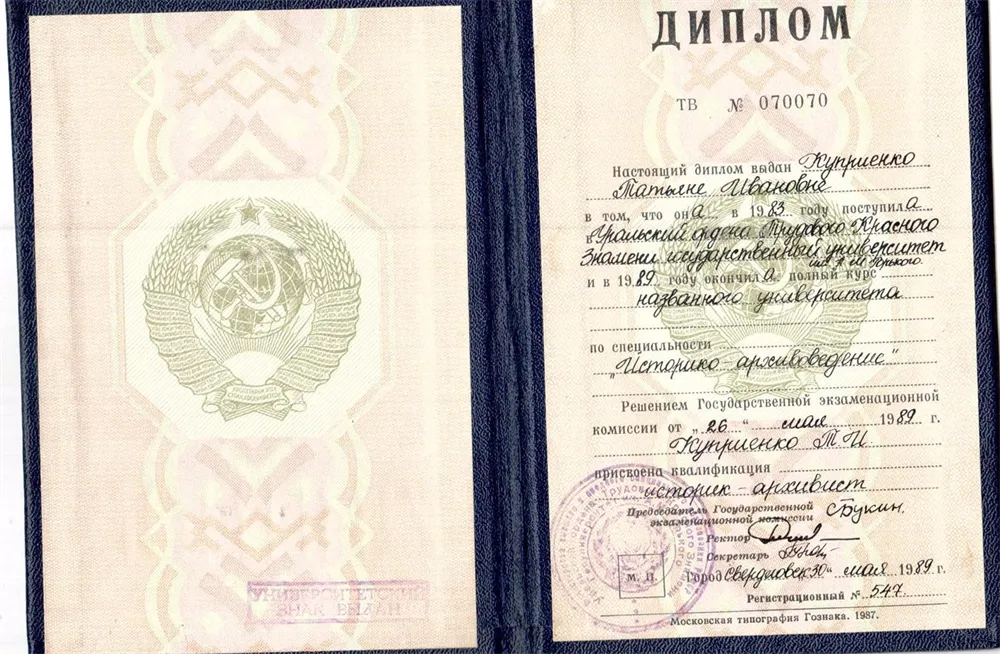 УНИВЕРСИТЕТСКИЙ
ЗНАК ВЫДАН
ДИПЛОМ
ТВ № 070070
Настоящий диплом выдан Куприенко
Татьяне Ивановне
в том, что она в 1983 году поступила
в Уральский ордена Трудового Красного
Знамени государственный университет
им. А. М. Горького
и в 1989 году окончила полный курс
названного университета
по специальности
"Историко архивоведение"
Решением Государственной экзаменационной
комиссии от „26“ мая 1989 г.
Куприенко Т И
присвоена квалификация
историк-архивист
Председатель Государственной
экзаменационной комиссии СБукин.
Ректор
Секретарь
М. П. Город Свердловск 30" мая 1989 г.
Регистрационный № 547.
Московская типография Гознака. 1987.